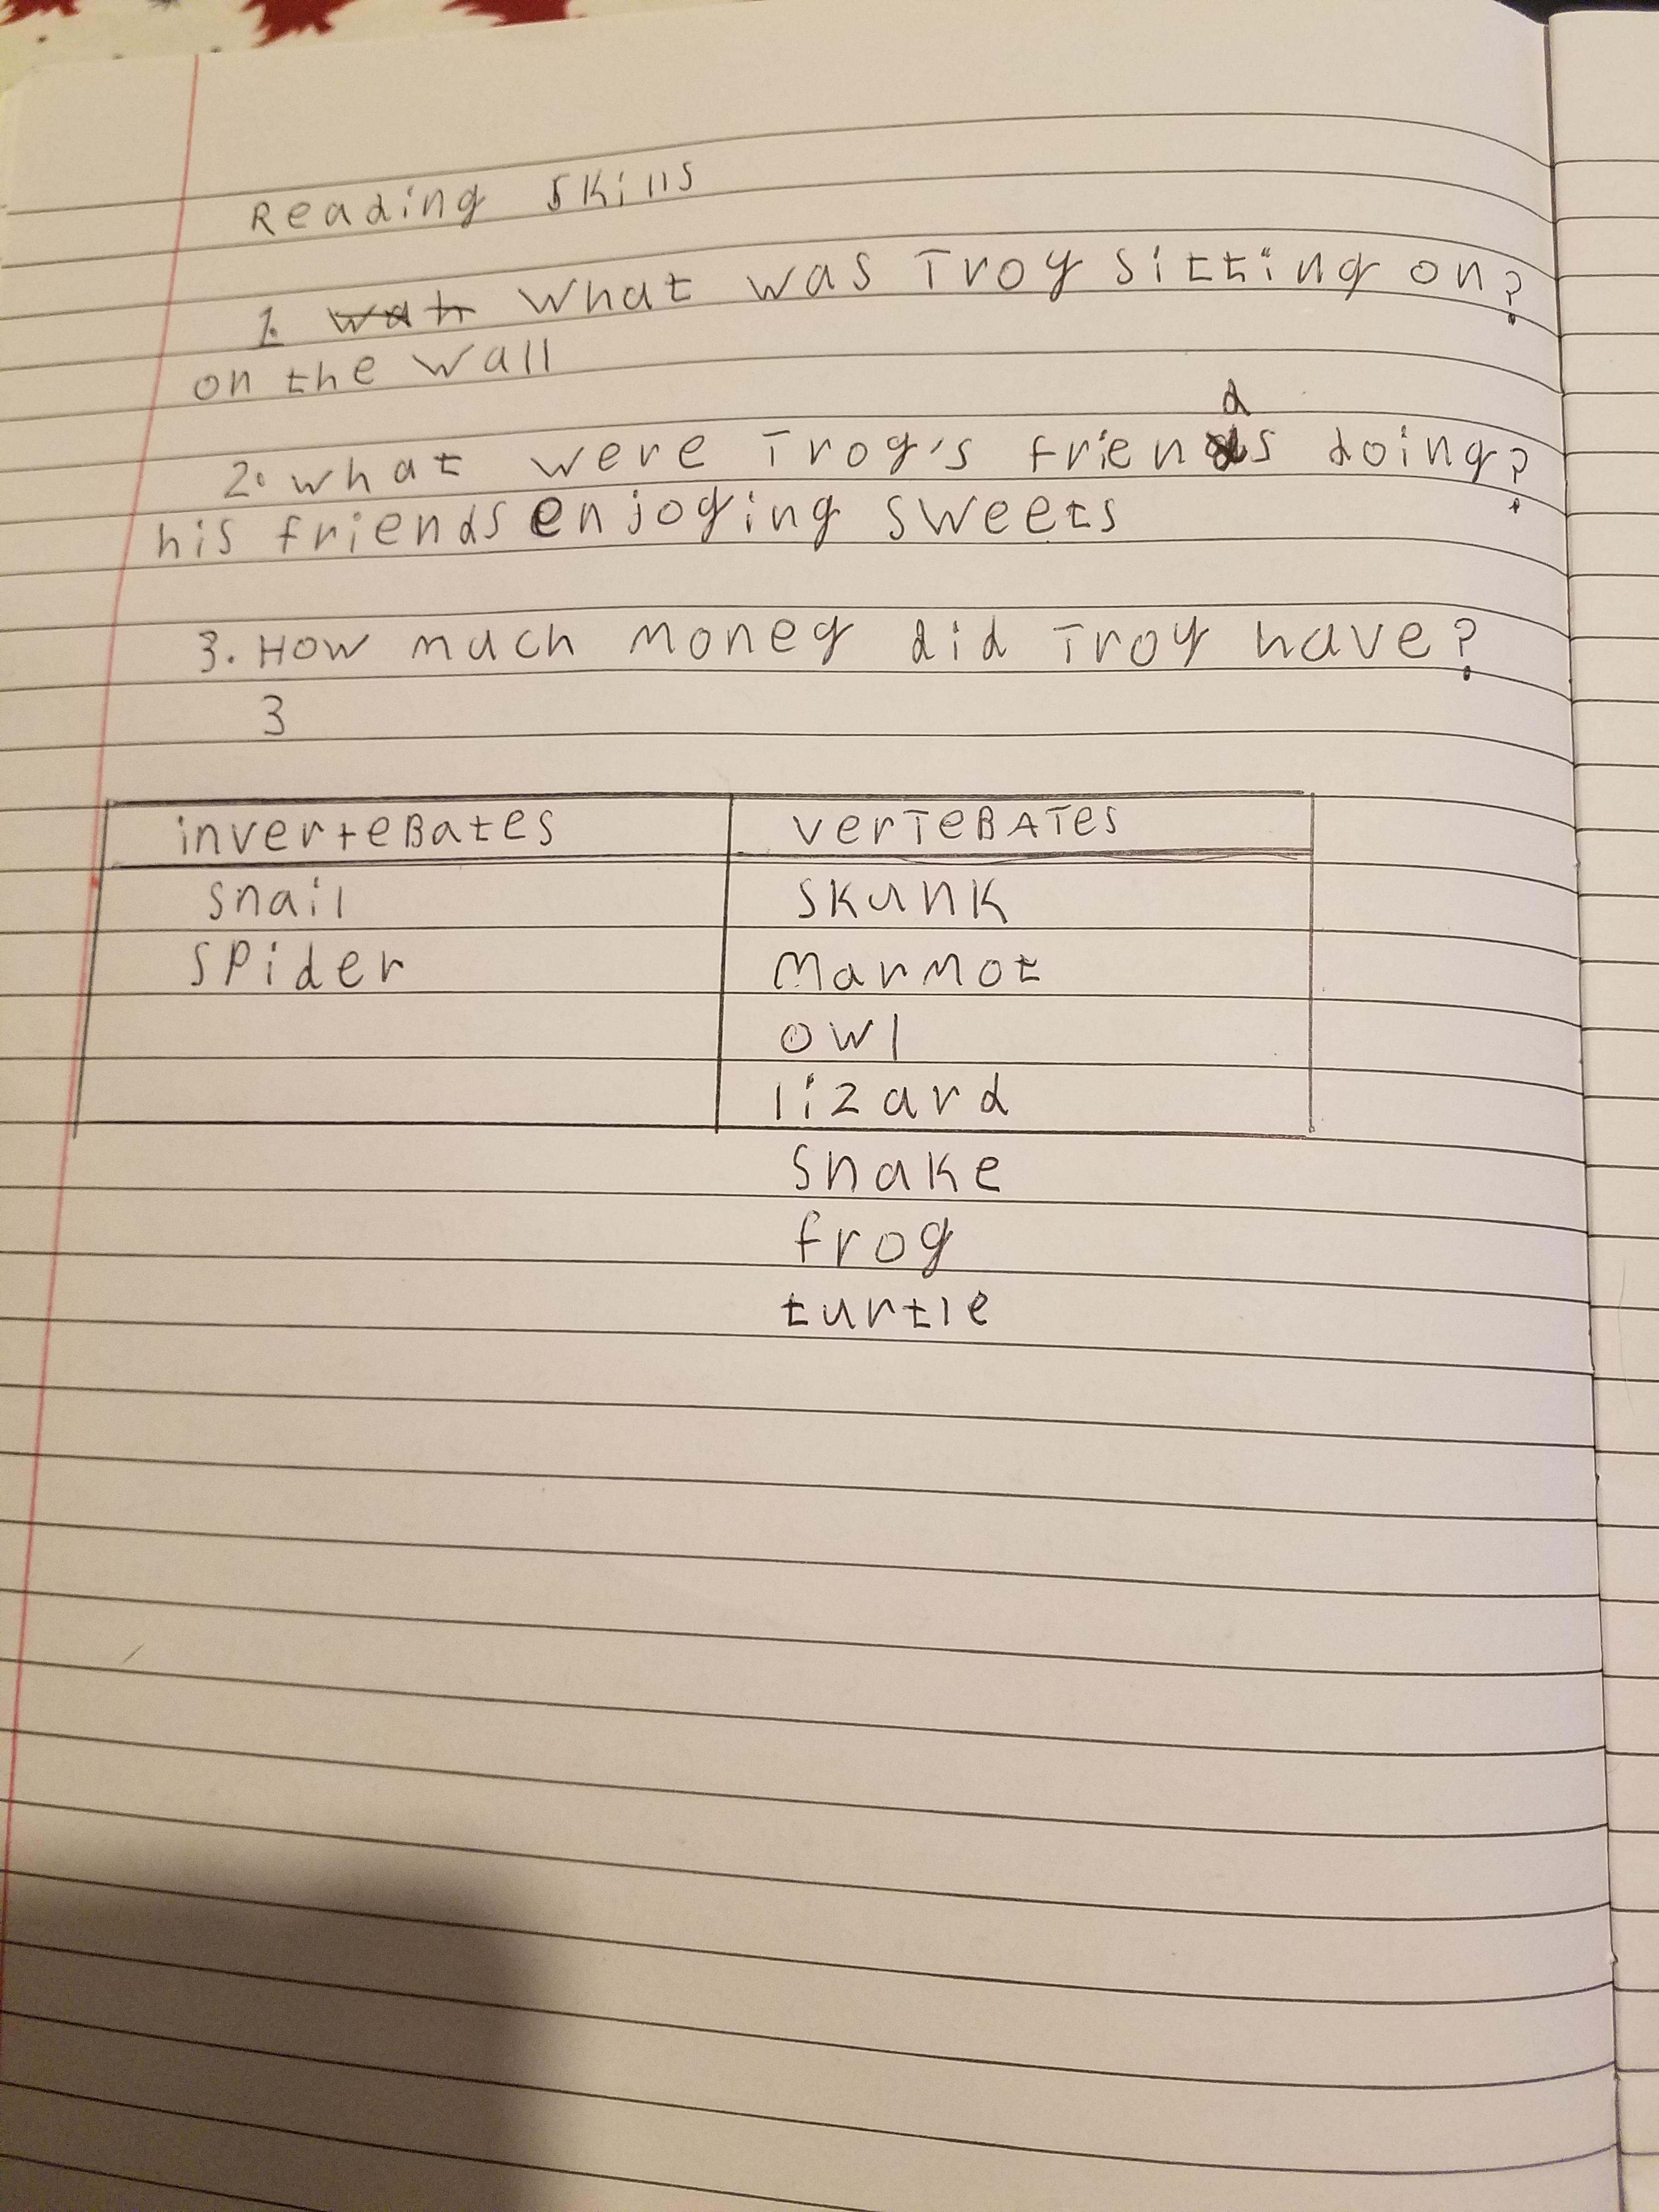 Reading Skills
1. wath What was Troy sitting on?
on the wall
2. what were Troy's friends doing?
his friends enjoying sweets
3. How much money did Troy have?
3
inverteBates verTeBATes
snail skunk
spider marmot
owl
lizard
snake
frog
turtle